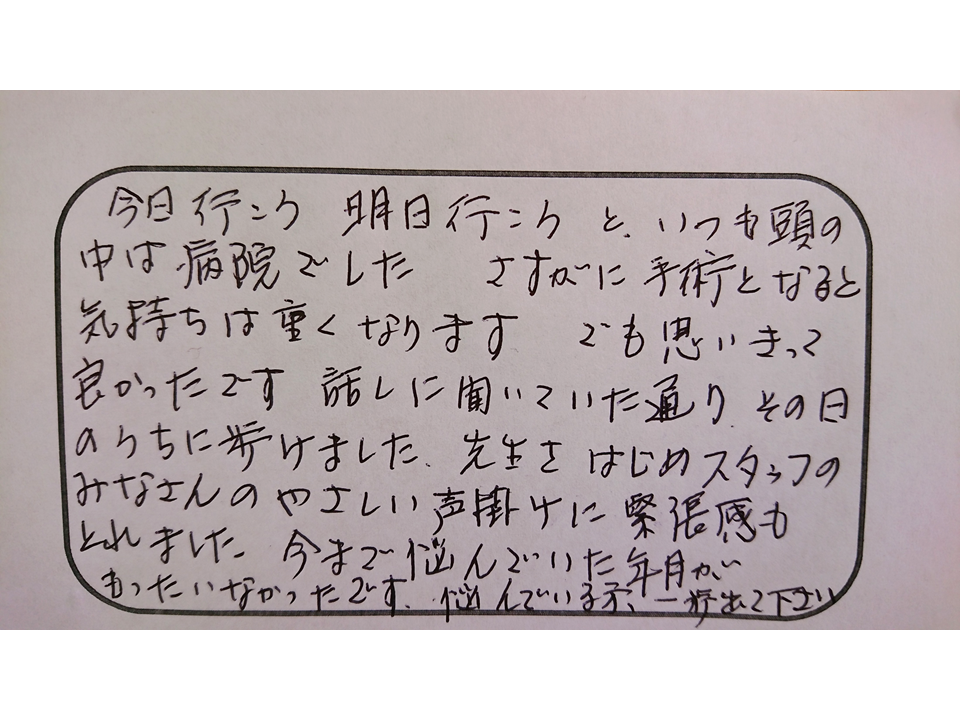 今日行こう 明日行こう と、いつも頭の
中は病院でした さすがに手術となると
気持ちは重くなります でも思いきって
良かったです 話しに聞いていた通り その日
のうちに歩けました。先生を はじめスタッフの
みなさんのやさしい声掛けに緊張感も
とれました。今まで悩んでいた年月が
もったいなかったです。悩んでいる方、一歩出て下さい